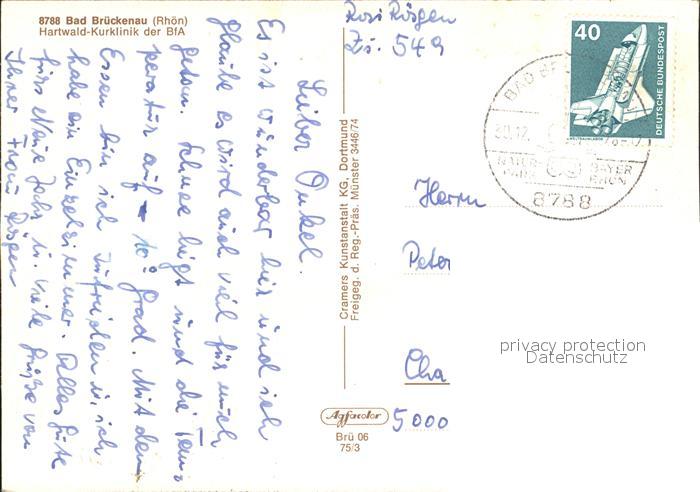 8788 Bad Brückenau (Rhön)
Hartwald-Kurklinik der BfA
Lieber Onkel.
Es ist wunderbar hier und ich
glaube es wird auch viel für mich
getan. Schnee liegt und die Tem-
peratur auf - 10° Grad. Mit dem
Essen bin ich zufrieden u. ich
habe ein Einzelzimmer. Alles Gute
fürs Neue Jahr u. viele Grüße von
Ihrer Frau Rösgen
Cramers Kunstanstalt KG, Dortmund
Freigeg. d. Reg.-Präs. Münster 3446/74
Agfacolor
Brü 06
75/3
Rosi Rösgen
Zi. 549
40
DEUTSCHE BUNDESPOST
WELTRAUMLABOR
BAD
30.12.
NATUR-
PARK
BAYER
RHÖN
8788
Herrn
Peter
5000
privacy protection
Datenschutz